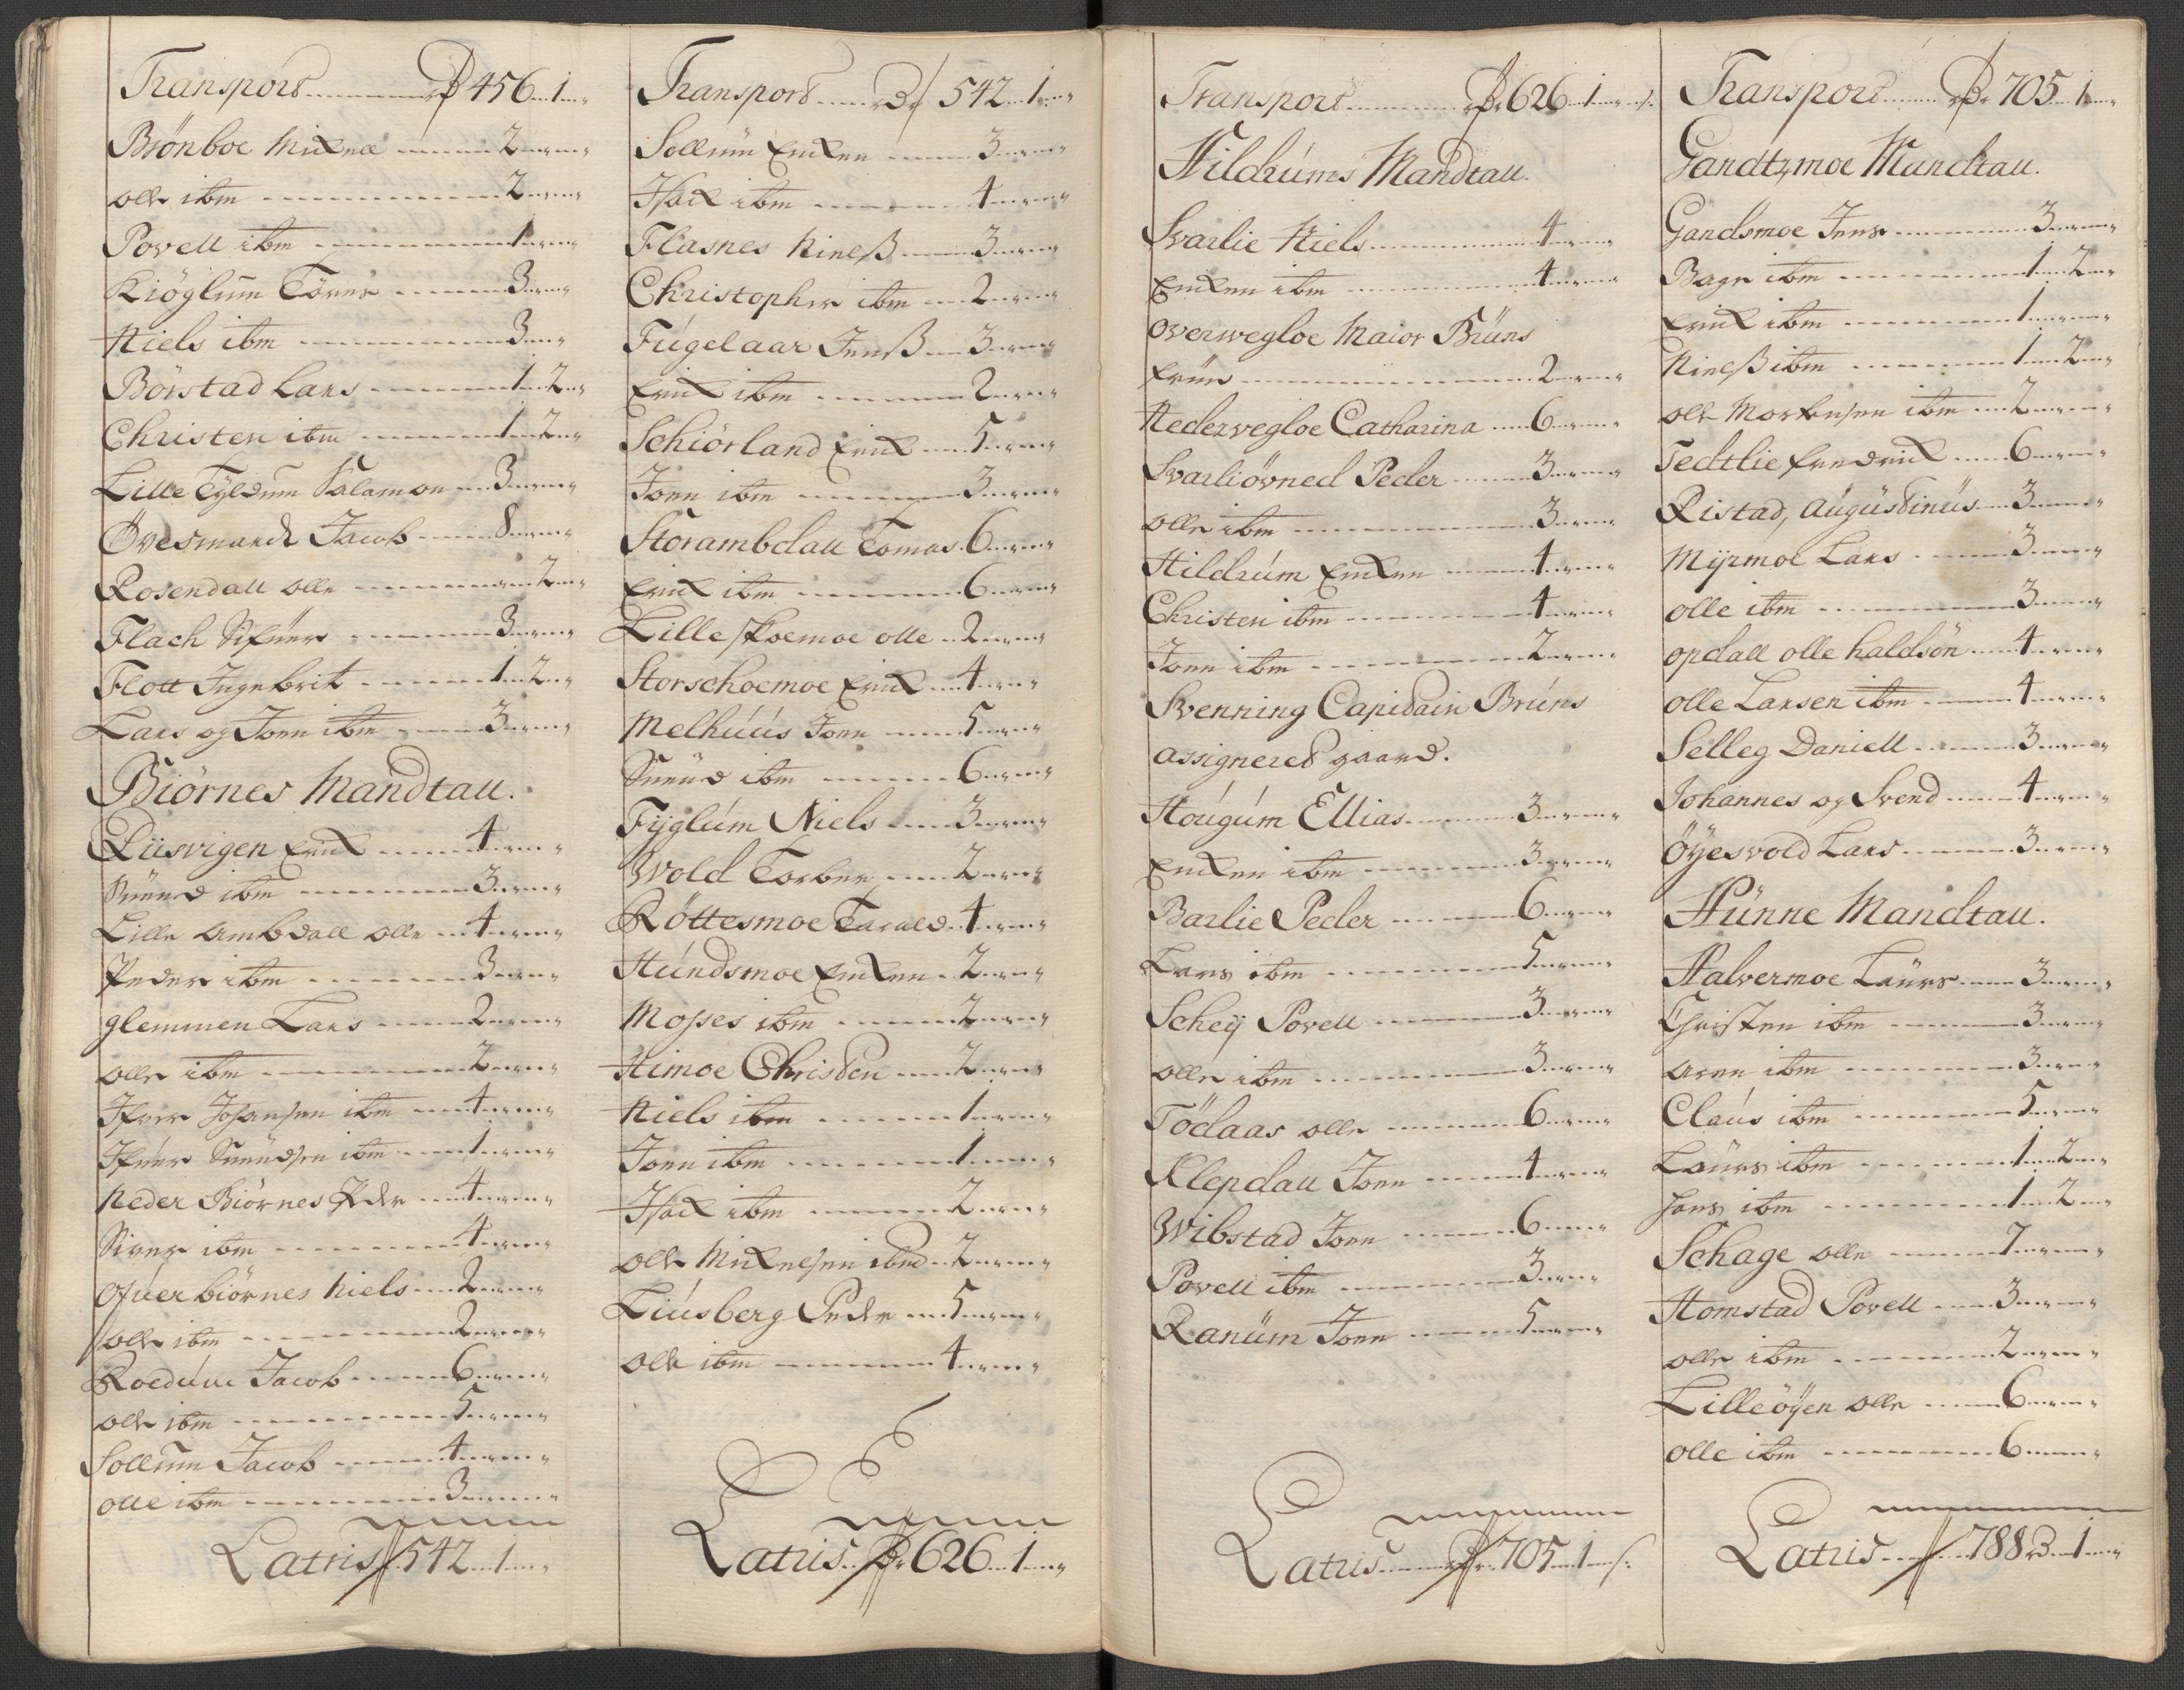 Transport Rdr 456 1
Brönboe Mickell 2
olle ibm 2
Povell ibm 1
Kiöglum Törris 3
Niels ibm 3
Börstad Lars 1 2
Christen ibm 1 2
Lille Tyldum Salamon 3
Övesmarck Jacob 8
Rosendall olle 2
Flach Sifuer 3
Flott Ingebrit 1 2
Lars og Jonn ibm 3
Biörnes Mandtall.
Diisvigen Erick 4
Siuend ibm 3
Lille Ambdall olle 4
Peder ibm 3
glemmen Lars 2
olle ibm 2
Ifver Johansen ibm 4
Ifuer Siuendsen ibm 1
Neder Biörnes Pedr 4
Siver ibm 4
Ofuer biörnes Niels 2
olle ibm 2
Roedum Jacob 6
olle ibm 5
Sollum Jacob 4
olle ibm 3
Latris 542 1
Transport Rdr 542 1
Sollum Encken 3
Isack ibm 4
Flasnes Nielß 3
Christopher ibm 2
Fúgelaar Jenß 3
Erick ibm 2
Schiörland Erick 5
Jonn ibm 3
Storambdall Tomas 6
Erick ibm 6
Lille skoemoe olle 2
Storschoemoe Erick 4
Melhúús Jonn 5
Siuend ibm 6
Fyglúm Niels 3
Wold Torber 2
Röttesmoe Tarald 4
Húndsmoe Encken 2
Mosses ibm 2
Himoe Christen 2
Niels ibm 1
Jonn ibm 1
Isack ibm 2
olle Mickelsen ibid 2
Liúsberg Pedr 5
olle ibm 4
Latris Rdr 626 1
Transport Rdr 626 1
Hildrúms Mandtall.
Svarlie Niels 4
Encken ibm 4
overwegloe Maior Brüns
Früe 2
Nedervegloe Catharina 6
Svarliövned Peder 3
olle ibm 3
Hildrúm Encken 4
Christen ibm 4
Jonn ibm 2
Svenning Capitain Brúns
assignered gaard.
Hoúgúm Ellias 3
Encken ibm 3
Barlie Peder 6
Lars ibm 5
Scheÿ Povell 3
olle ibm 3
Tödaas olle 6
Klepdall Jonn 4
Wibstad Jonn 6
Povell ibm 3
Ranüm Jonn 5
Latris Rdr 705 1
Transport Rdr 705 1
Gandtzmoe Mandtall.
Gandsmoe Jens 3
Bage ibm 1 2
Erick ibm 1
Nielß ibm 1 2
olle Mortensen ibm 2
Tedtlie fredrick 6
Ristad, Aúgústinús 3
Myrmoe Lars 3
olle ibm 3
opdall olle haldsön 4
olle Larsen ibm 4
Selleg Daniell 3
Johannes og Svend 4
Öÿesvold Lars 3
Húnne Mandtall.
Halvermoe Laurs 3
Christen ibm 3
Aren ibm 3
Claús ibm 5
Laurs ibm 1 2
Hans ibm 1 2
Schage olle 7
Homstad Povell 3
olle ibm 2
Lilleöÿen olle 6
olle ibm 6
Latris 788 1